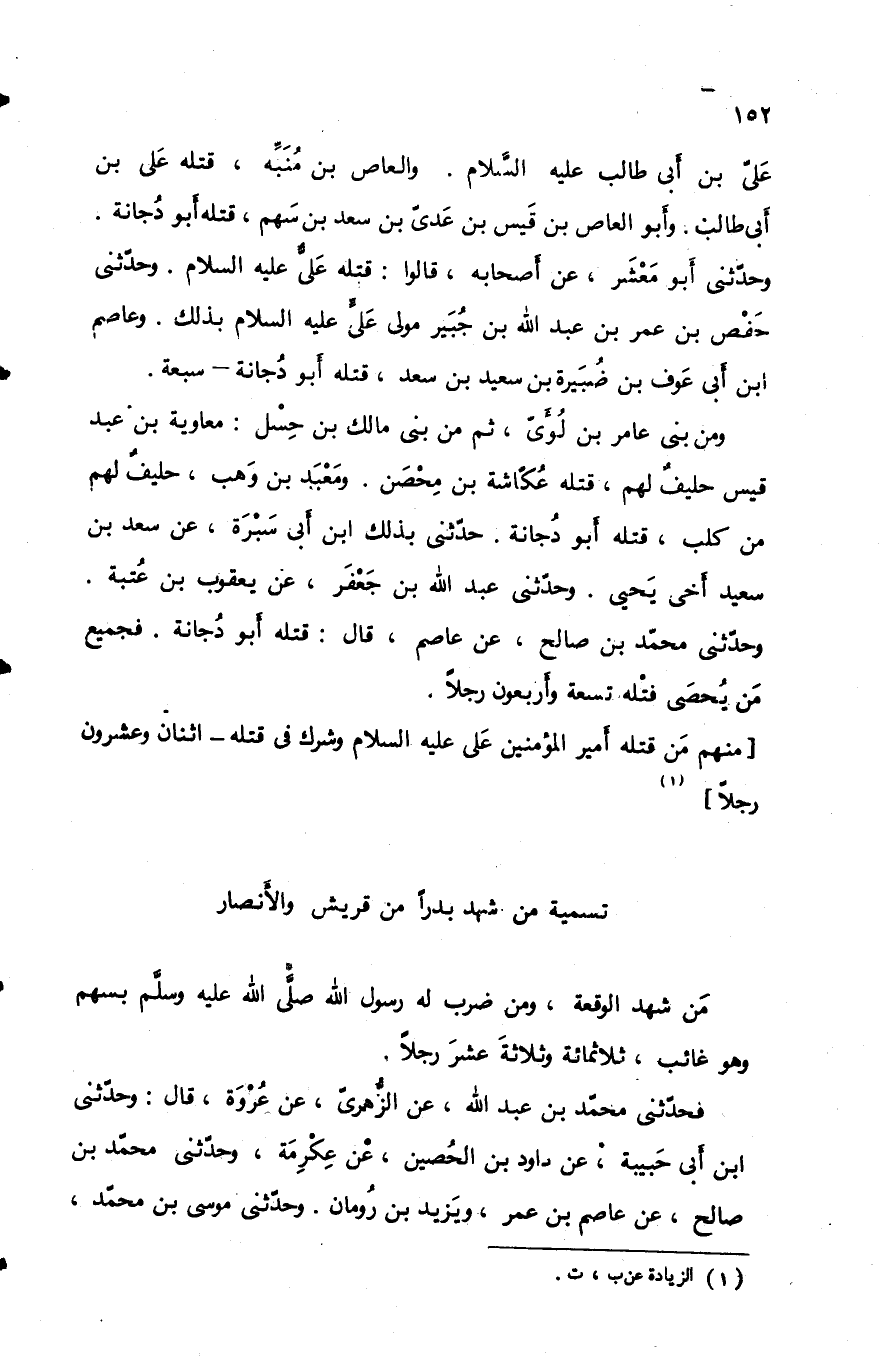 ١٥٢
عَلىّ بن أَبى طالب عليه السَّلام . والعاص بن مُنَبِّه ، قتله عَلى بن
أَبى طالب . وأَبو العاص بن قَيس بن عَدىّ بن سعد بن سَهم ، قتله أَبو دُجانة .
وحدّثنى أَبو مَعْشَر ، عن أَصحابه ، قالوا : قتله عَلىٌّ عليه السلام . وحدّثنى
حَفْص بن عمر بن عبد الله بن جُبَير مولى عَلىٍّ عليه السلام بذلك . وعاصم
ابن أَبى عَوف بن ضُبَيرة بن سعيد بن سعد ، قتله أَبو دُجانة – سبعة .
ومن بنى عامر بن لُوَّىّ ، ثم من بنى مالك بن حِسْل : معاوية بن عبد
قيس حليفٌ لهم ، قتله عُكّاشة بن مِحْصَن . ومَعْبَد بن وَهب ، حليفٌ لهم
من كلب ، قتله أَبو دُجانة . حدّثنى بذلك ابن أَبى سَبْرَة ، عن سعد بن
سعيد أَخى يَحيى . وحدّثنى عبد الله بن جَعْفَر ، عن يعقوب بن عُتبة .
وحدّثنى محمّد بن صالح ، عن عاصم ، قال : قتله أَبو دُجانة . فجميع
مَن يُحصَى قتْله تسعة وأَربعون رجلاً .
[ منهم مَن قتله أَمير المؤمنين عَلى عليه السلام وشرك فى قتله – اثنان وعشرون
رجلاً ] (١)
تسمية من شهد بدراً من قريش والأَنصار
مَن شهد الوقعة ، ومن ضرب له رسول الله صلَّى الله عليه وسلَّم بسهم
وهو غائب ، ثلاثمائة وثلاثةَ عشرَ رجلاً .
فحدّثنى محمّد بن عبد الله ، عن الزُّهرىّ ، عن عُرْوَة ، قال : وحدّثنى
ابن أَبى حَبيبة ، عن داود بن الحُصين ، عن عِكْرِمَة ، وحدّثنى محمّد بن
صالح ، عن عاصم بن عمر ، ويَزيد بن رُومان . وحدّثنى موسى بن محمّد ،
(١) الزيادة عن ب ، ت .